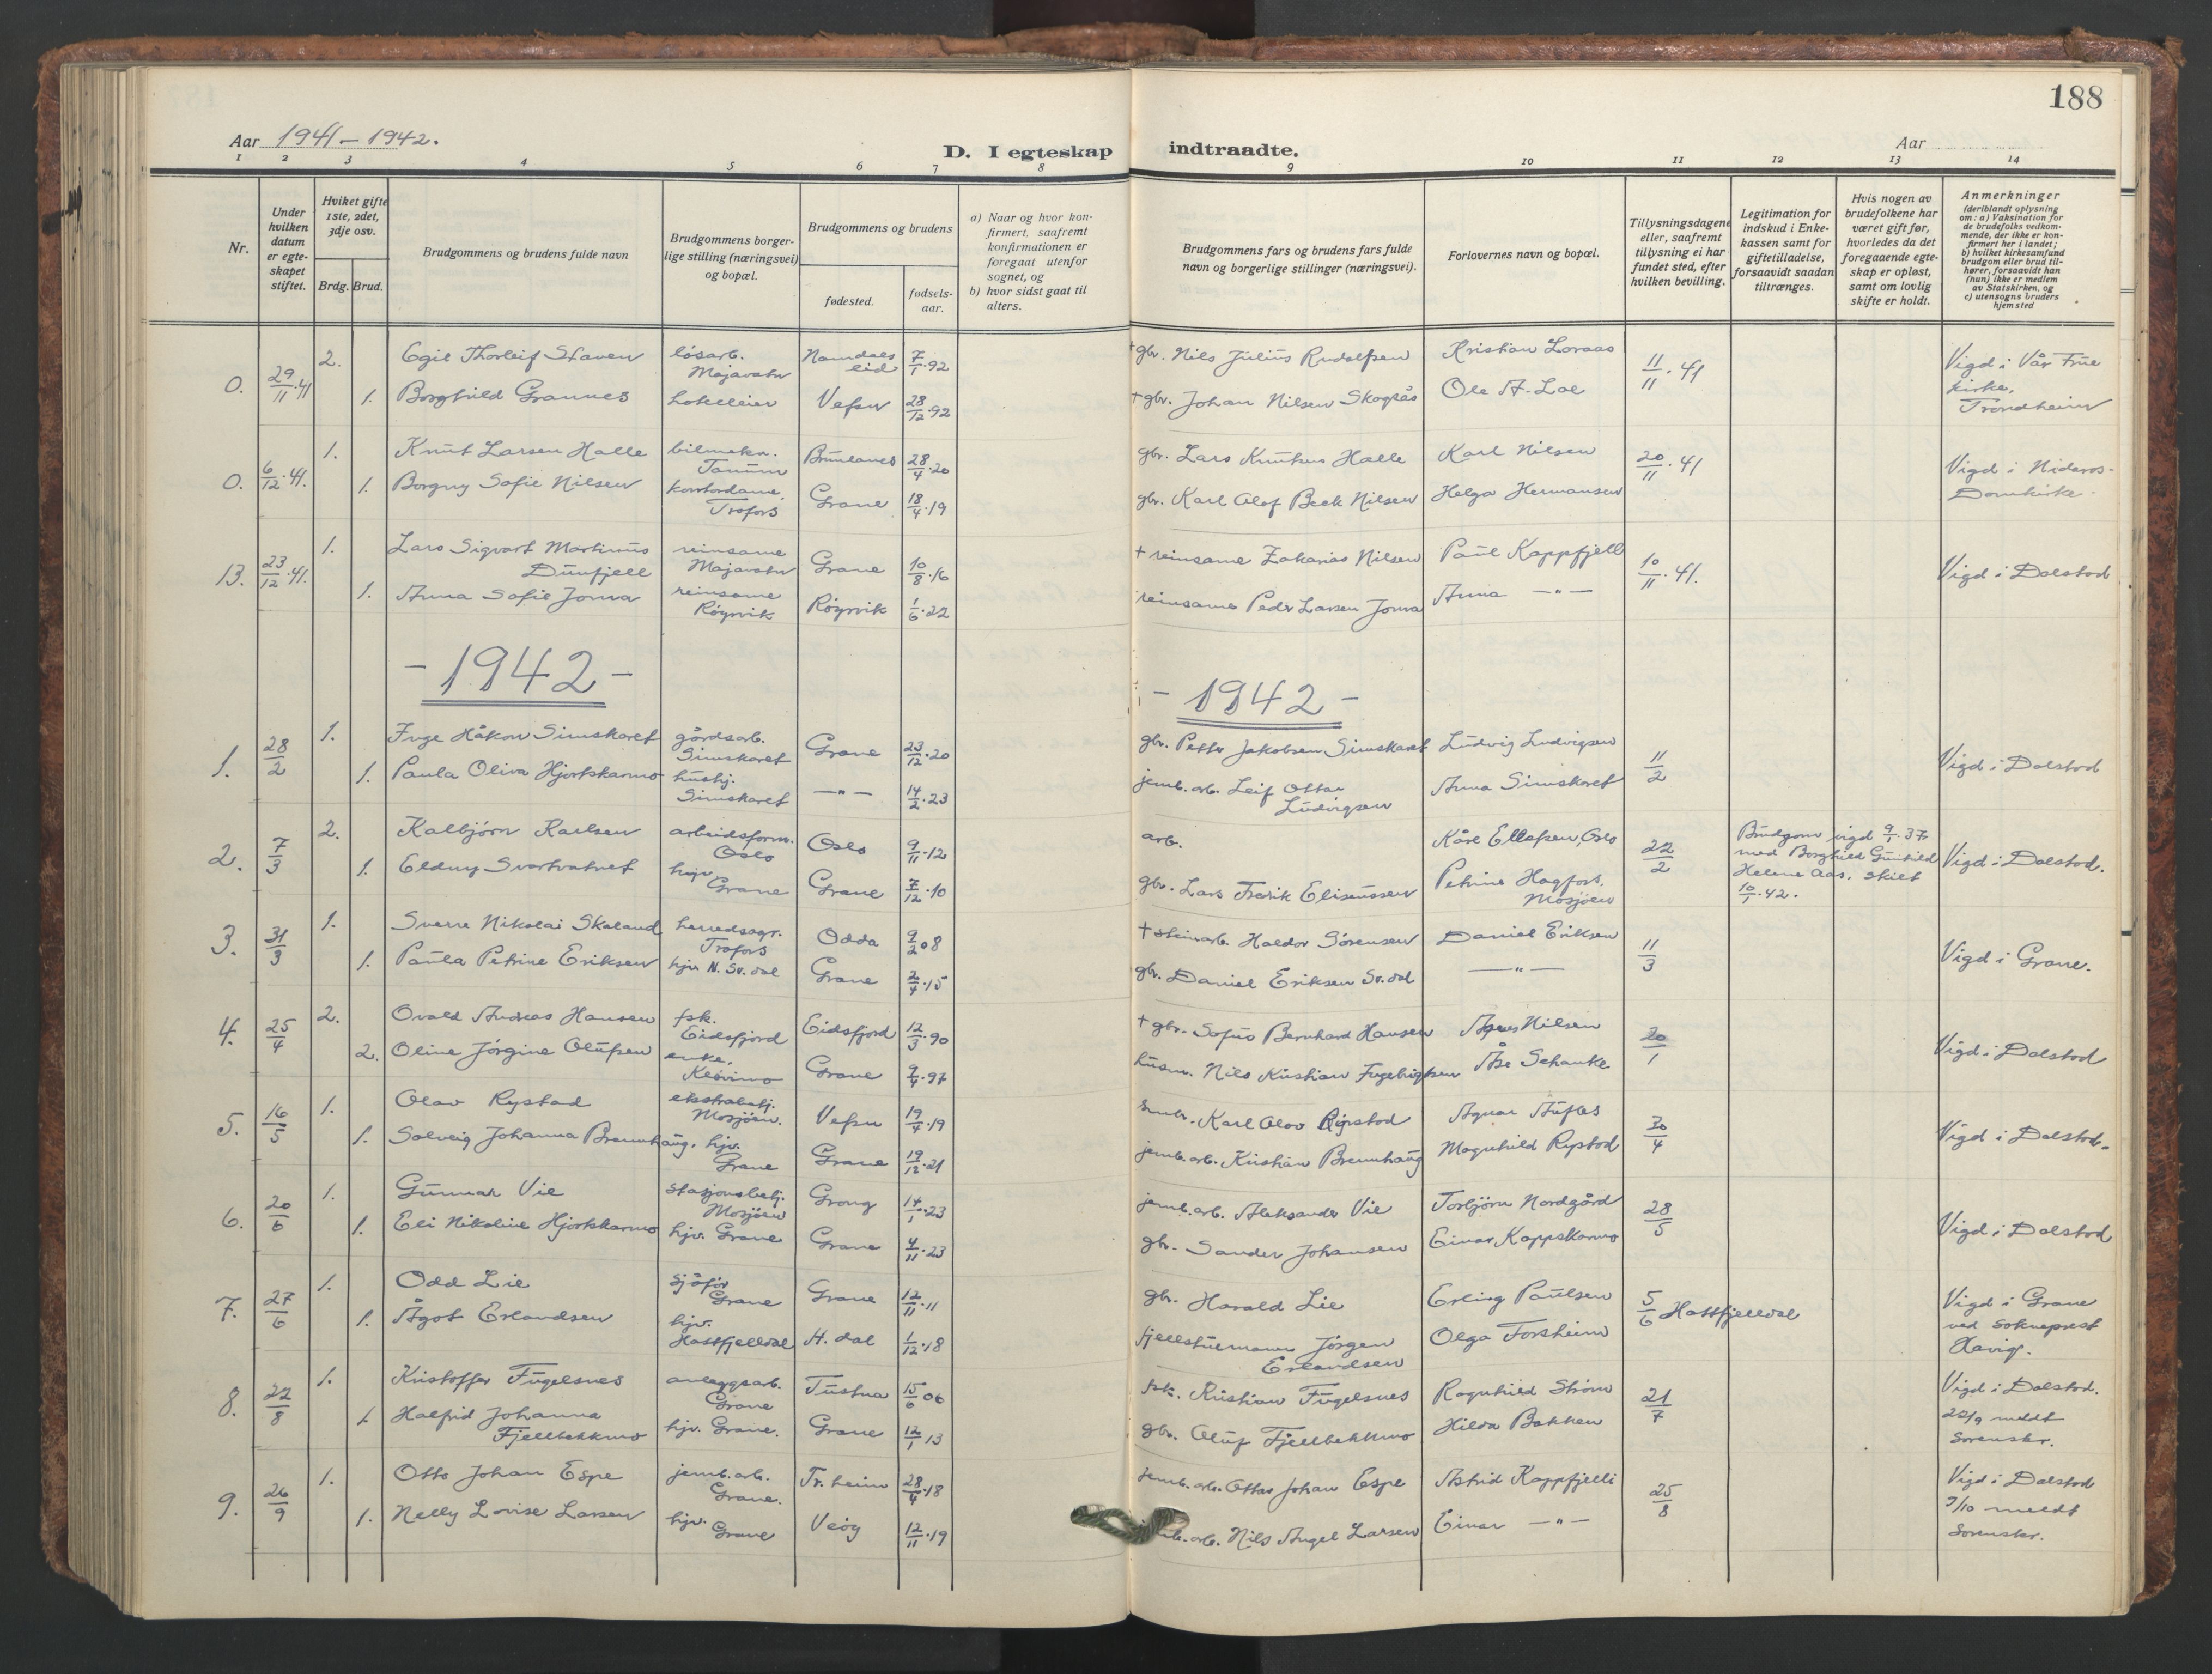 188
Aar 1941 – 1942.
D. I egteskap indtraadte.
Aar
1 2 3 4 5 6 7 8 9 10 11 12 13 14
Nr.
Under hvilken datum er egte-skapet stiftet.
Hviket gifte 1ste, 2det, 3dje osv.
Brdg. Brud.
Brudgommens og brudens fulde navn
Brudgommens borger-lige stilling (næringsvei) og bopæl.
Brudgommens og brudens
fødested.
fødsels-aar.
a) Naar og hvor kon-firmert, saafremt konfirmationen er foregaat utenfor sognet, og
b) hvor sidst gaat til alters.
Brudgommens fars og brudens fars fulde navn og borgerlige stillinger (næringsvei).
Forlovernes navn og bopæl.
Tillysningsdagene eller, saafremt tillysning ei har fundet sted, efter hvilken bevilling.
Legitimation for indskud i Enke-kassen samt for giftetilladelse, forsaavidt saadan tiltrænges.
Hvis nogen av brudefolkene har været gift før, hvorledes da det foregaaende egte-skap er opløst, samt om lovlig skifte er holdt.
Anmerkninger
(deriblandt oplysning om: a) Vaksination for de brudefolks vedkom-mende, der ikke er kon-firmert her i landet; b) hvilket kirkesamfund brudgom eller brud til-hører, forsaavidt han (hun) ikke er medlem av Statskirken, og c) utensogns bruders hjemsted
0. 29/11 41 2. Egil Thorleif Staven løsarb. Majavatn Namdalseid 7/1 92 + gbr. Nils Julius Rudolfsen Kristian Loraas 11/11 41 Vigd i Vår Frue kirke, Trondheim
1. Borghild Grannes hotelleier Vefsn 28/12 92 + gbr. Johan Nilsen Skogsås Ole A. Loe
0. 6/12 41. 1. Knut Larsen Halle bilmekn. Tanum Brunlanes 28/4 20 gbr. Lars Knutsen Halle Karl Nilsen 20/11 41 Vigd i Nidaros-Domkirke.
1. Borgny Sofie Nilsen kontordame, Trofors Grane 18/4 19 gbr. Karl Olof Beck Nilsen Helga Hermansen
13. 23/12 41. 1. Lars Sigvart Martinus Dunfjell reinsame Majavatn Grane 10/8 16 + reinsame Zakarias Nilsen Paul Kappfjell 10/11 41. Vigd i Dolstad
1. Anna Sofie Joma reinsame Røyrvik Røyrvik 1/6 22 reinsame Peder Larsen Joma Anna —"—
– 1942 – – 1942 –
1. 28/2 1. Inge Håkon Simskaret gårdsarb. Simskaret Grane 23/12 20 gbr. Petter Jakobsen Simskaret Ludvig Ludvigsen 11/2 Vigd i Dolstad
1. Paula Oliva Hjortskarmo hushj. Simskaret —"— 14/2 23 jernb. arb. Leif Ottar Ludvigsen Anna Simskaret
2. 7/3 2. Kalbjørn Karlsen arbeidsform. Oslo Oslo 9/11 12 arb. Kåre Ellefsen, Oslo 22/2 Brudgom vigd 9/ 37 med Borghild Gunhild Helene Aas, skilt 10/1 42. Vigd i Dolstad.
1. Eldny Svartvatnet hjv. Grane Grane 7/12 10 gbr. Lars Fredrik Eliseussen Petrine Hagfors, Mosjøen
3. 31/3 1. Sverre Nikolai Skaland herredsagr. Trofors Odda 9/2 08 + steinarb. Haldor Sørensen Daniel Eriksen 11/3 Vigd i Grane.
1. Paula Petrine Eriksen hjv. N. Sv. dal Grane 2/4 15 gbr. Daniel Eriksen Sv. dal —"—
4. 25/4 2. Ovald Andreas Hansen fsk. Eidsfjord Eidsfjord 12/3 90 + gbr. Sofus Bernhard Hansen Agnes Nilsen 20/1 Vigd i Dolstad
2. Oline Jørgine Olufsen enke, Kløvimo Grane 9/4 97 husm. Nils Kristian Ingebrigtsen Åse Schanke
5. 16/5 1. Olav Rystad ekstrabetj. Mosjøen. Vefsn 19/4 19 Karl Olav Rystad Agnar Aufles 30/4 Vigd i Dolstad.
1. Solveig Johanna Brennhaug, hjv. Grane Grane 19/12 21 jernb. arb. Kristian Brennhaug Magnhild Rystad
6. 20/6 1. Gunnar Vie stasjonsbetj. Mosjøen Grong 14/1 23 jernb. arb. Aleksander Vie Torbjørn Nordgård 28/5 Vigd i Dolstad
1. Eli Nikoline Hjortskarmo hjv. Grane Grane 4/11 23 gbr. Sander Johansen Einar Kappskarmo
7. 27/6 1. Odd Lie sjåfør Grane Grane 12/11 11 gbr. Harald Lie Erling Paulsen 5/6 Hattfjelldal Vigd i Grane ved sokneprest Havig.
1. Ågot Erlandsen hjv. Hattfjelldal H. dal 1/12 18 fjellstuemann Jørgen Erlandsen Olga Forsheim
8. 22/8 1. Kristoffer Fugelsnes anleggsarb. Grane Tustna 15/6 06 fsk. Kristian Fugelsnes Ragnhild Strøm 21/7 Vigd i Dolstad. 22/9 meldt Sorenskr.
1. Halfrid Johanna Fjellbekkmo hjv. Grane. Grane 12/1 13 gbr. Oluf Fjellbekkmo Hilda Bakken
9. 26/9 1. Otto Johan Espe jernb. arb. Grane. Tr. heim 28/4 18 jernb. arb. Ottar Johan Espe Astrid Kappfjelli 25/8 Vigd i Dolstad 7/10 meldt Sorenskr.
1. Nelly Lovise Larsen hjv. Grane Veøy 12/11 19 jernb. arb. Nils Angel Larsen Einar —"—